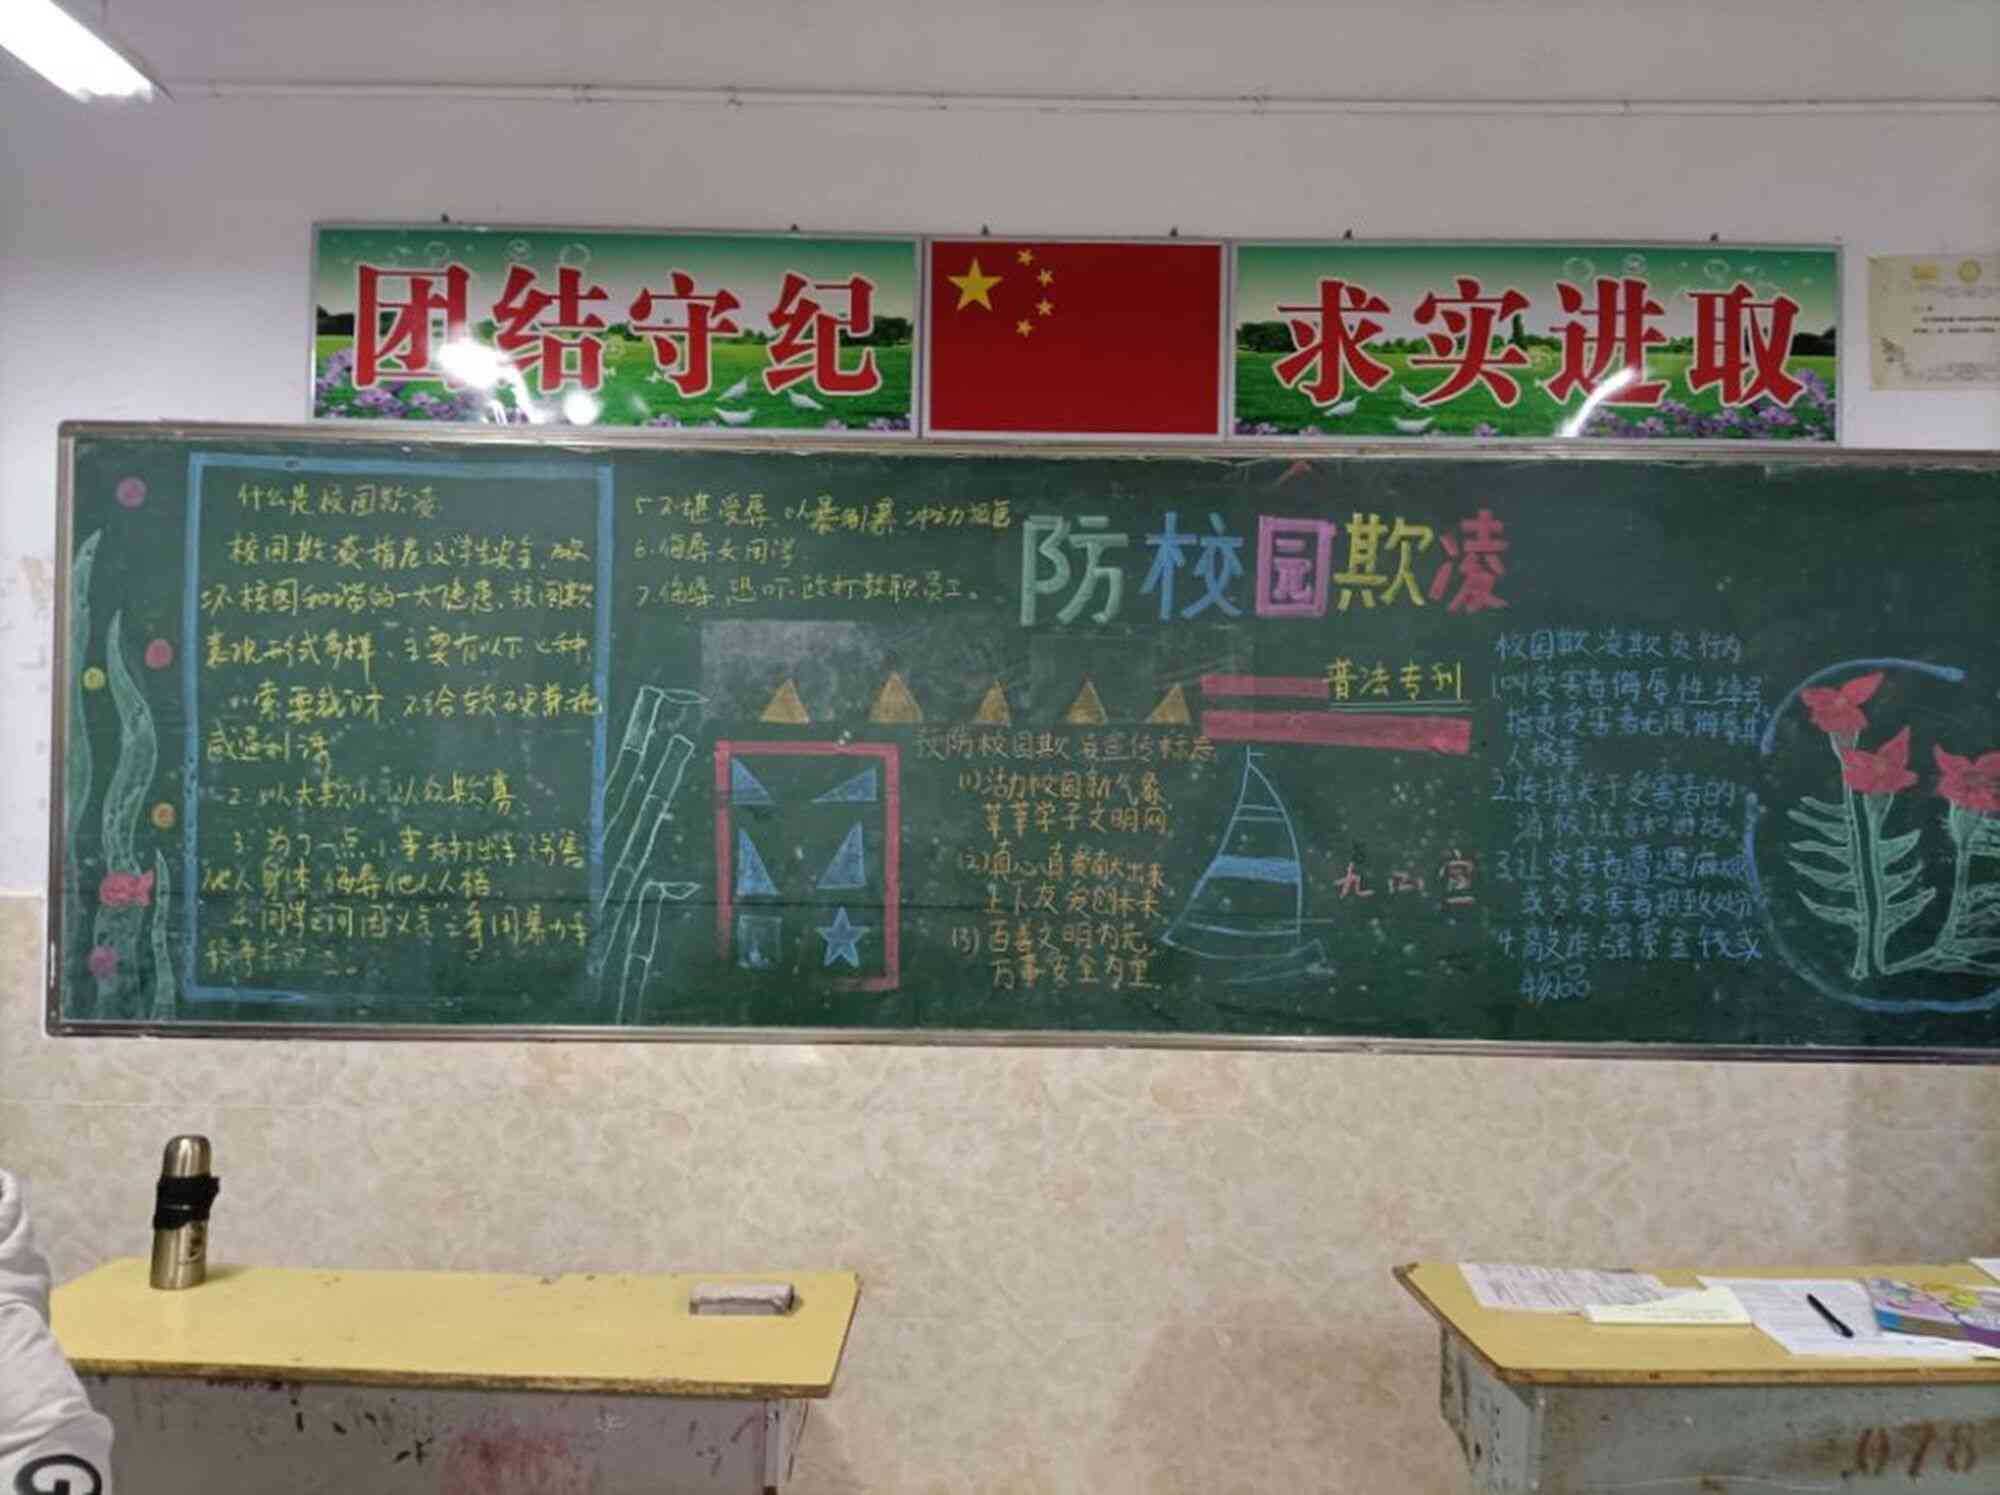 团结守纪
求实进取
什么是校园欺凌
校园欺凌指危及学生安全,破
坏校园和谐的一大隐患,校园欺
表现形式多样,主要有以下七种,
索要钱财,不给软硬兼施
威逼利诱
2.以大欺小,以众欺寡.
3.为了一点小事大打出手伤害
他人身体,侮辱他人人格.
4.同学之间因“义气”之争用暴力手
5.不堪受辱,以暴制暴
6.侮辱女同学
7.侮辱恐吓殴打教职员工。
防校园欺凌
普法专刊
校防校园欺凌宣传标志
(1)活力校园新气象
莘莘学子文明网
(2)真心真爱献出来
上下友爱创未来
(3)百善文明为先
万事安全为里
九(2)宣
校园欺凌欺负行为
1.叫受害者侮辱性绰号
指责受害者无用侮辱其
人格等
2.传播关于受害者的
消极谣言和
3.让受害者遭遇麻烦
或令受害者招致处分
4.敲诈强索金钱或
物品
078
G